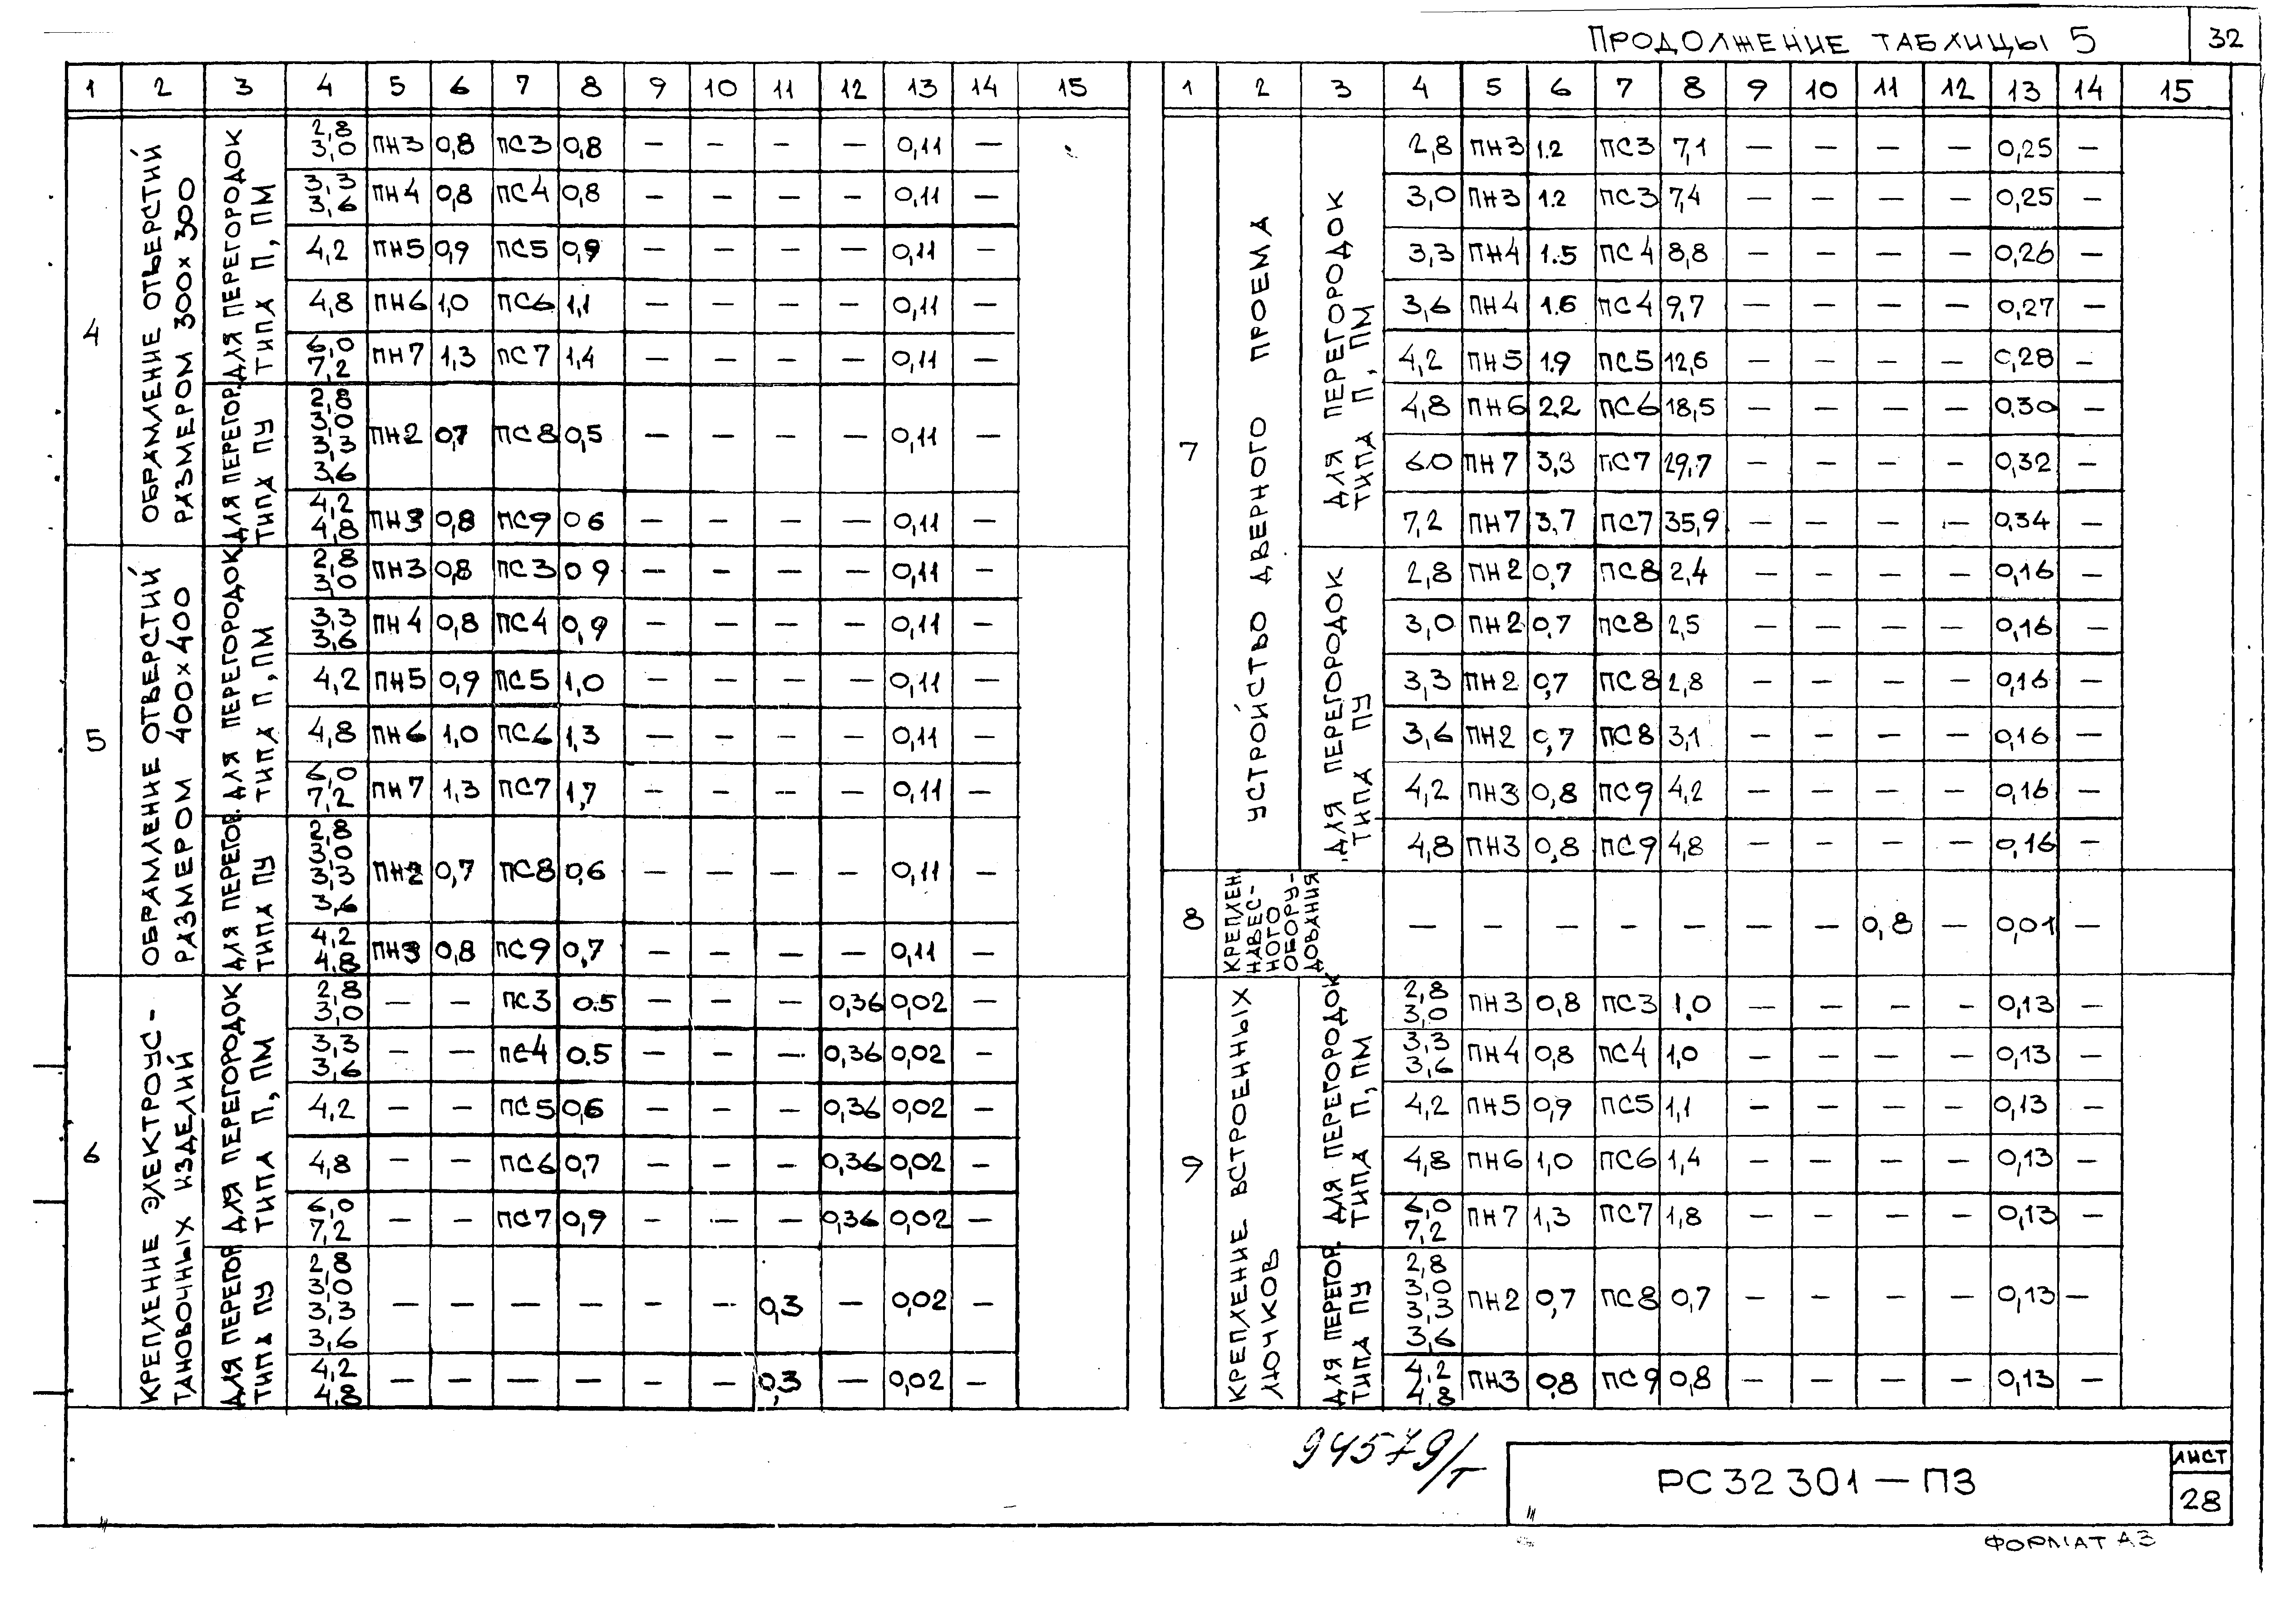 ПРОДОЛЖЕНИЕ ТАБЛИЦЫ 5
32
1 2 3 4 5 6 7 8 9 10 11 12 13 14 15
4
ОБРАМЛЕНИЕ ОТВЕРСТИЙ
РАЗМЕРОМ 300×300
ДЛЯ ПЕРЕГОРОДОК
ТИПА П, ПМ
2,8 3,0 ПН3 0,8 ПС3 0,8 — — — — 0,11 —
3,3 3,6 ПН4 0,8 ПС4 0,8 — — — — 0,11 —
4,2 ПН5 0,9 ПС5 0,9 — — — — 0,11 —
4,8 ПН6 1,0 ПС6 1,1 — — — — 0,11 —
6,0 7,2 ПН7 1,3 ПС7 1,4 — — — — 0,11 —
ДЛЯ ПЕРЕГОР.
ТИПА ПУ
2,8 3,0 3,3 3,6 ПН2 0,7 ПС8 0,5 — — — — 0,11 —
4,2 4,8 ПН3 0,8 ПС9 0 6 — — — — 0,11 —
5
ОБРАМЛЕНИЕ ОТВЕРСТИЙ
РАЗМЕРОМ 400×400
ДЛЯ ПЕРЕГОРОДОК
ТИПА П, ПМ
2,8 3,0 ПН3 0,8 ПС3 0 9 — — — — 0,11 —
3,3 3,6 ПН4 0,8 ПС4 0,9 — — — — 0,11 —
4,2 ПН5 0,9 ПС5 1,0 — — — — 0,11 —
4,8 ПН6 1,0 ПС6 1,3 — — — — 0,11 —
6,0 7,2 ПН7 1,3 ПС7 1,7 — — — — 0,11 —
ДЛЯ ПЕРЕГОР.
ТИПА ПУ
2,8 3,0 3,3 3,6 ПН2 0,7 ПС8 0,6 — — — — 0,11 —
4,2 4,8 ПН3 0,8 ПС9 0,7 — — — — 0,11 —
6
КРЕПЛЕНИЕ ЭЛЕКТРОУС-
ТАНОВОЧНЫХ ИЗДЕЛИЙ
ДЛЯ ПЕРЕГОРОДОК
ТИПА П, ПМ
2,8 3,0 — — ПС3 0.5 — — — 0,36 0,02 —
3,3 3,6 — — ПС4 0.5 — — — 0,36 0,02 —
4,2 — — ПС5 0,6 — — — 0,36 0,02 —
4,8 — — ПС6 0,7 — — — 0,36 0,02 —
6,0 7,2 — — ПС7 0,9 — — — 0,36 0,02 —
ДЛЯ ПЕРЕГОР.
ТИПА ПУ
2,8 3,0 3,3 3,6 — — — — — — 0,3 — 0,02 —
4,2 4,8 — — — — — — 0,3 — 0,02 —
1 2 3 4 5 6 7 8 9 10 11 12 13 14 15
7
УСТРОЙСТВО ДВЕРНОГО ПРОЕМА
ДЛЯ ПЕРЕГОРОДОК
ТИПА П, ПМ
2,8 ПН3 1.2 ПС3 7,1 — — — — 0,25 —
3,0 ПН3 1.2 ПС3 7,4 — — — — 0,25 —
3,3 ПН4 1.5 ПС4 8,8 — — — — 0,26 —
3,6 ПН4 1.6 ПС4 9,7 — — — — 0,27 —
4,2 ПН5 1.9 ПС5 12,6 — — — — 0,28 —
4,8 ПН6 2.2 ПС6 18,5 — — — — 0,30 —
6.0 ПН7 3,3 ПС7 29,7 — — — — 0,32 —
7,2 ПН7 3,7 ПС7 35,9 — — — — 0,34 —
ДЛЯ ПЕРЕГОРОДОК
ТИПА ПУ
2,8 ПН2 0,7 ПС8 2,4 — — — — 0,16 —
3,0 ПН2 0,7 ПС8 2,5 — — — — 0,16 —
3,3 ПН2 0,7 ПС8 2,8 — — — — 0,16 —
3,6 ПН2 0,7 ПС8 3,1 — — — — 0,16 —
4,2 ПН3 0,8 ПС9 4,2 — — — — 0,16 —
4,8 ПН3 0,8 ПС9 4,8 — — — — 0,16 —
8
КРЕПЛЕН.
НАВЕС-
НОГО
ОБОРУ-
ДОВАНИЯ
— — — — — — — 0,8 — 0,01 —
9
КРЕПЛЕНИЕ ВСТРОЕННЫХ
ЛЮЧКОВ
ДЛЯ ПЕРЕГОРОДОК
ТИПА П, ПМ
2,8 3,0 ПН3 0,8 ПС3 1.0 — — — — 0,13 —
3,3 3,6 ПН4 0,8 ПС4 1,0 — — — — 0,13 —
4,2 ПН5 0,9 ПС5 1,1 — — — — 0,13 —
4,8 ПН6 1,0 ПС6 1,4 — — — — 0,13 —
6,0 7,2 ПН7 1,3 ПС7 1,8 — — — — 0,13 —
ДЛЯ ПЕРЕГОР.
ТИПА ПУ
2,8 3,0 3,3 3,6 ПН2 0,7 ПС8 0,7 — — — — 0,13 —
4,2 4,8 ПН3 0,8 ПС9 0,8 — — — — 0,13 —
94579/т
РС32301—ПЗ
ЛИСТ
28
ФОРМАТ А3